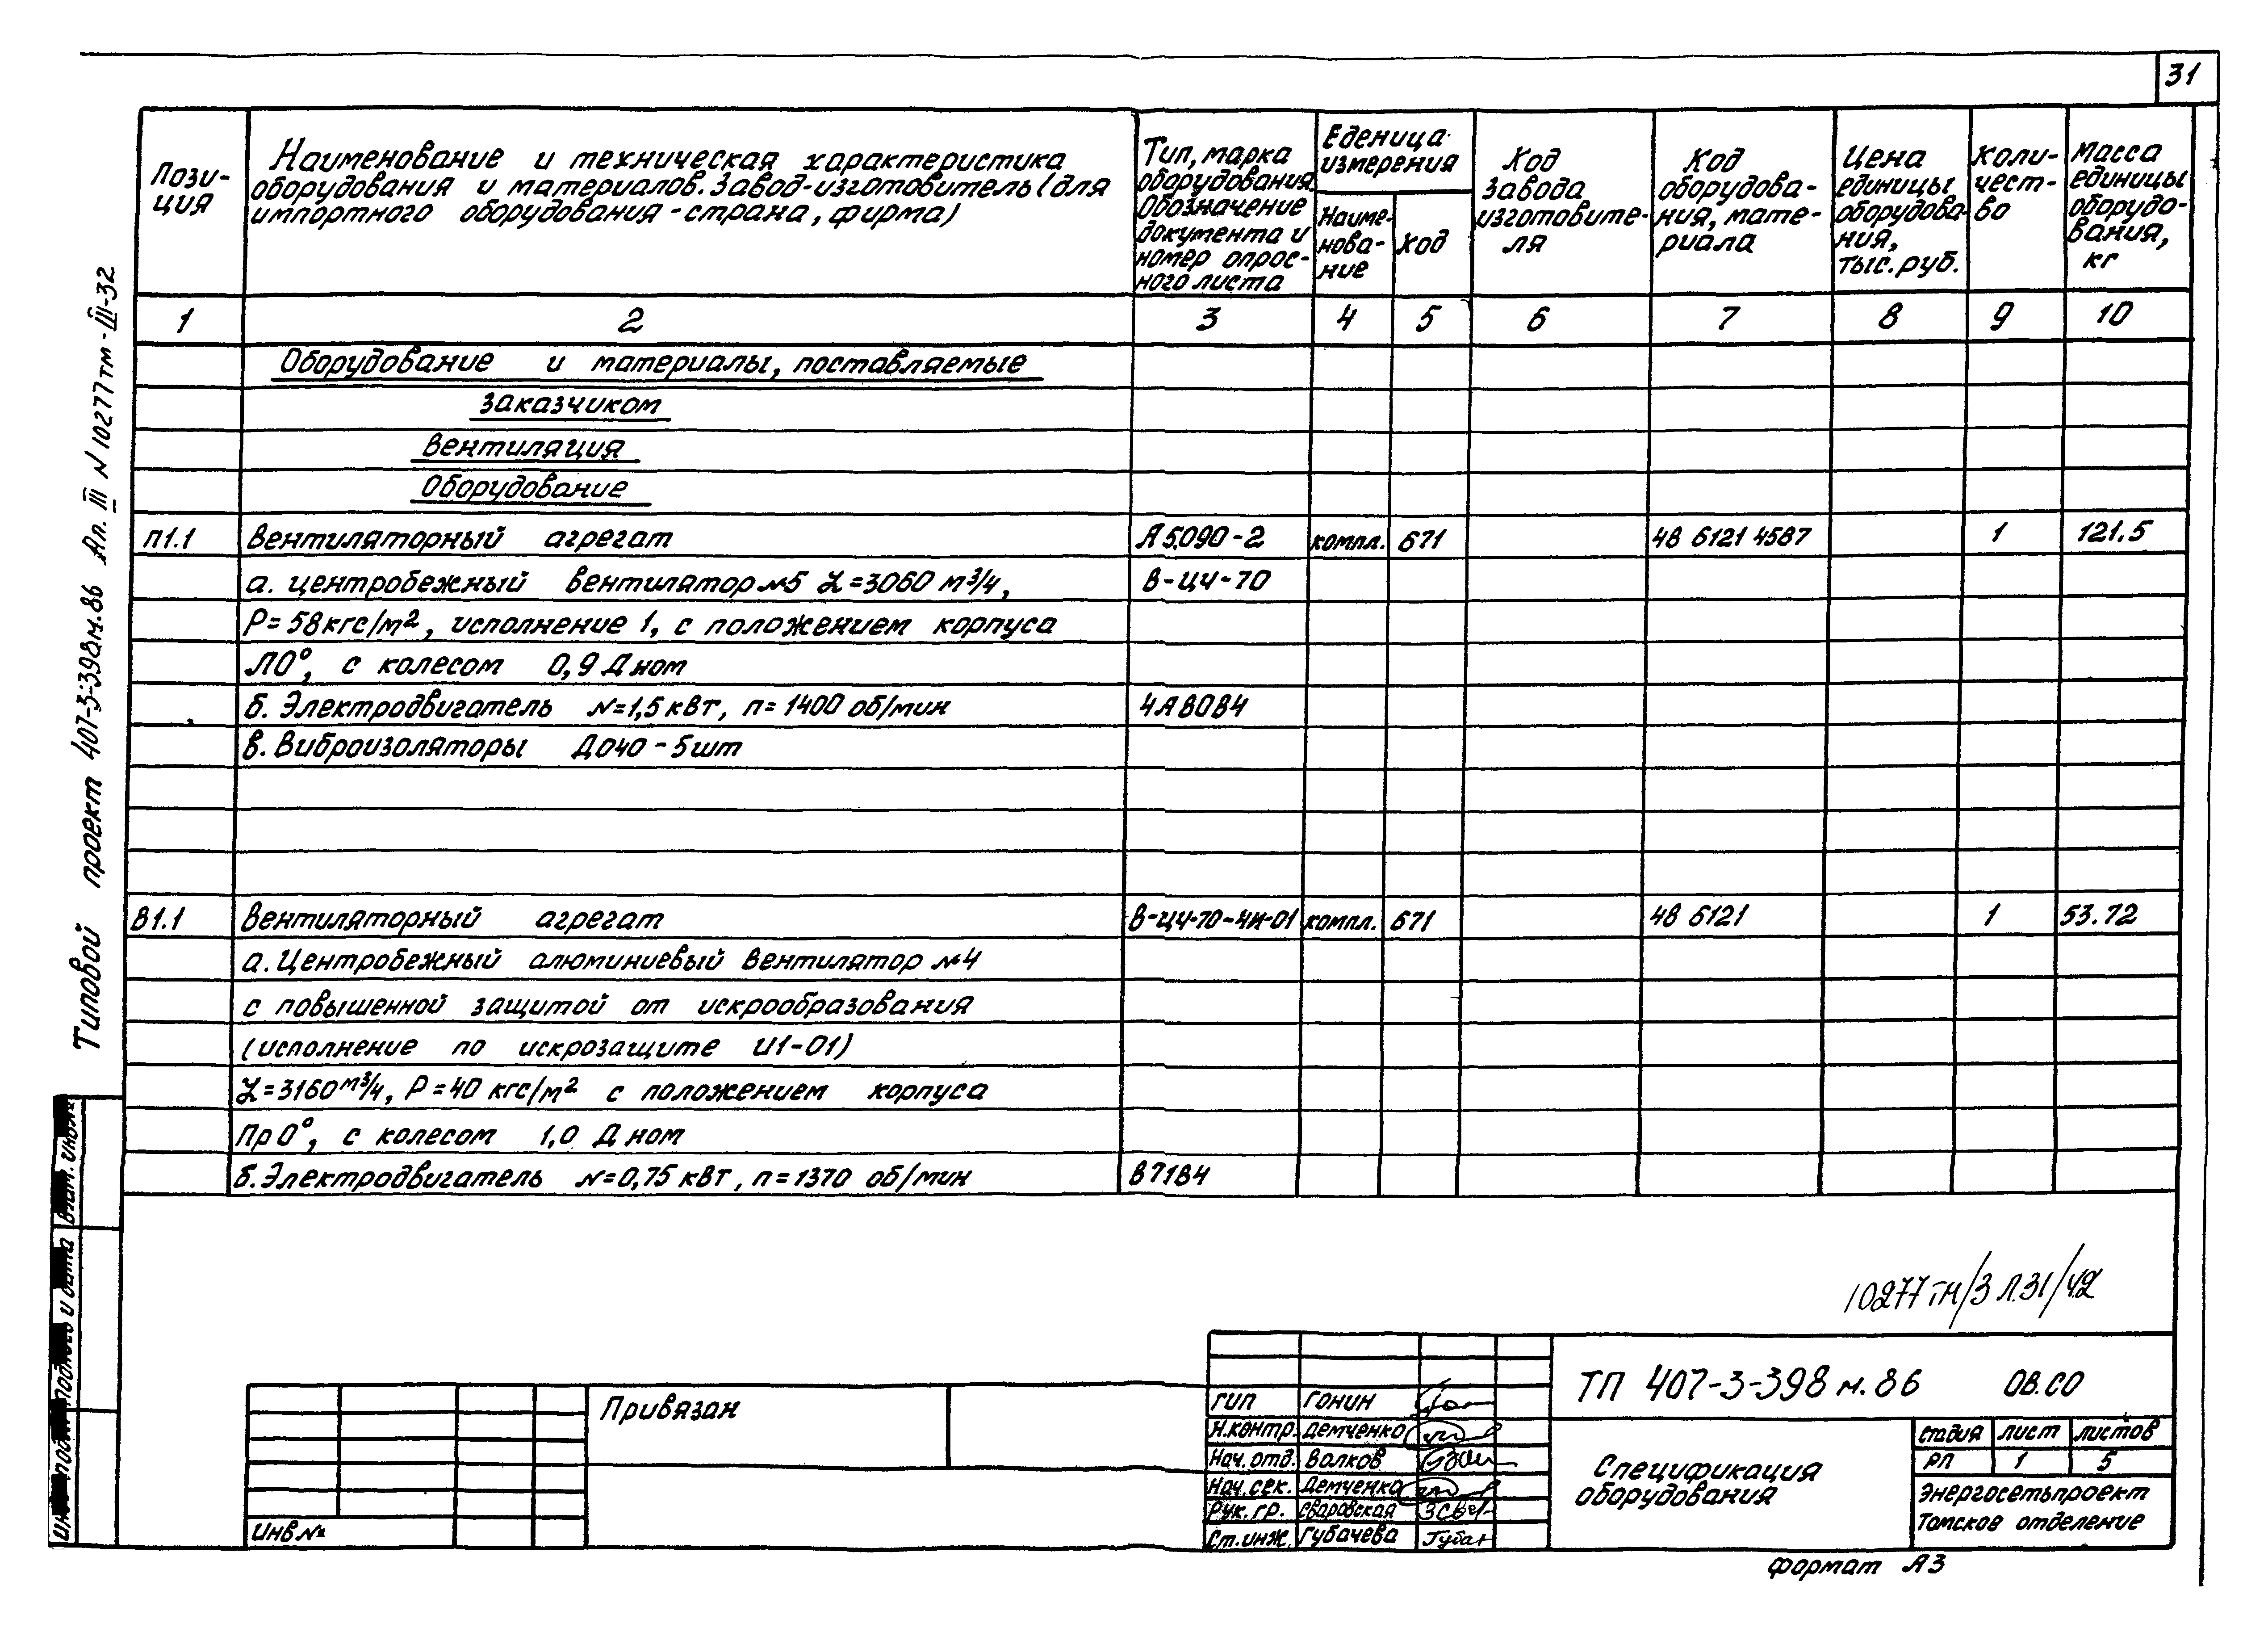 31
Пози-
ция
Наименование и техническая характеристика
оборудования и материалов. Завод-изготовитель (для
импортного оборудования - страна, фирма)
Тип, марка
оборудования.
Обозначение
документа и
номер опрос-
ного листа
Еденица
измерения
Наиме-
нова-
ние
Код
Код
завода
изготовите-
ля
Код
оборудова-
ния, мате-
риала
Цена
единицы
оборудова-
ния,
тыс. руб.
Коли-
чест-
во
Масса
единицы
оборудо-
вания,
кг
1 2 3 4 5 6 7 8 9 10
Оборудование и материалы, поставляемые
заказчиком
Вентиляция
Оборудование
П1.1 Вентиляторный агрегат А5.090-2 компл. 671 48 6121 4587 1 121.5
а. центробежный вентилятор №5 L=3060 м³/ч, В-Ц4-70
Р=58кгс/м², исполнение 1, с положением корпуса
Л0°, с колесом 0,9 Дном
б. Электродвигатель N=1,5 кВт, п=1400 об/мин 4А80В4
в. Виброизоляторы Д040-5шт
В1.1 Вентиляторный агрегат В-Ц4-70-4И-01 компл. 671 48 6121 1 53.72
а. Центробежный алюминиевый вентилятор №4
с повышенной защитой от искрообразования
(исполнение по искрозащите И1-01)
L=3160 м³/ч, Р=40 кгс/м² с положением корпуса
Пр 0°, с колесом 1,0 Дном
б. Электродвигатель N=0,75 кВт, п=1370 об/мин В71В4
Типовой проект 407-3-398м.86 Ал. III N 10277тм-III-32
10277тм/3 л.31/42
Привязан
Инв №
ГИП Гонин
Н.контр. Демченко
Нач. отд. Волков
Нач. сек. Демченко
Рук. гр. Сваровская
Ст. инж. Губачева
ТП 407-3-398 м.86 ОВ.СО
Спецификация
оборудования
стадия лист листов
РП 1 5
Энергосетьпроект
Томское отделение
Формат А3